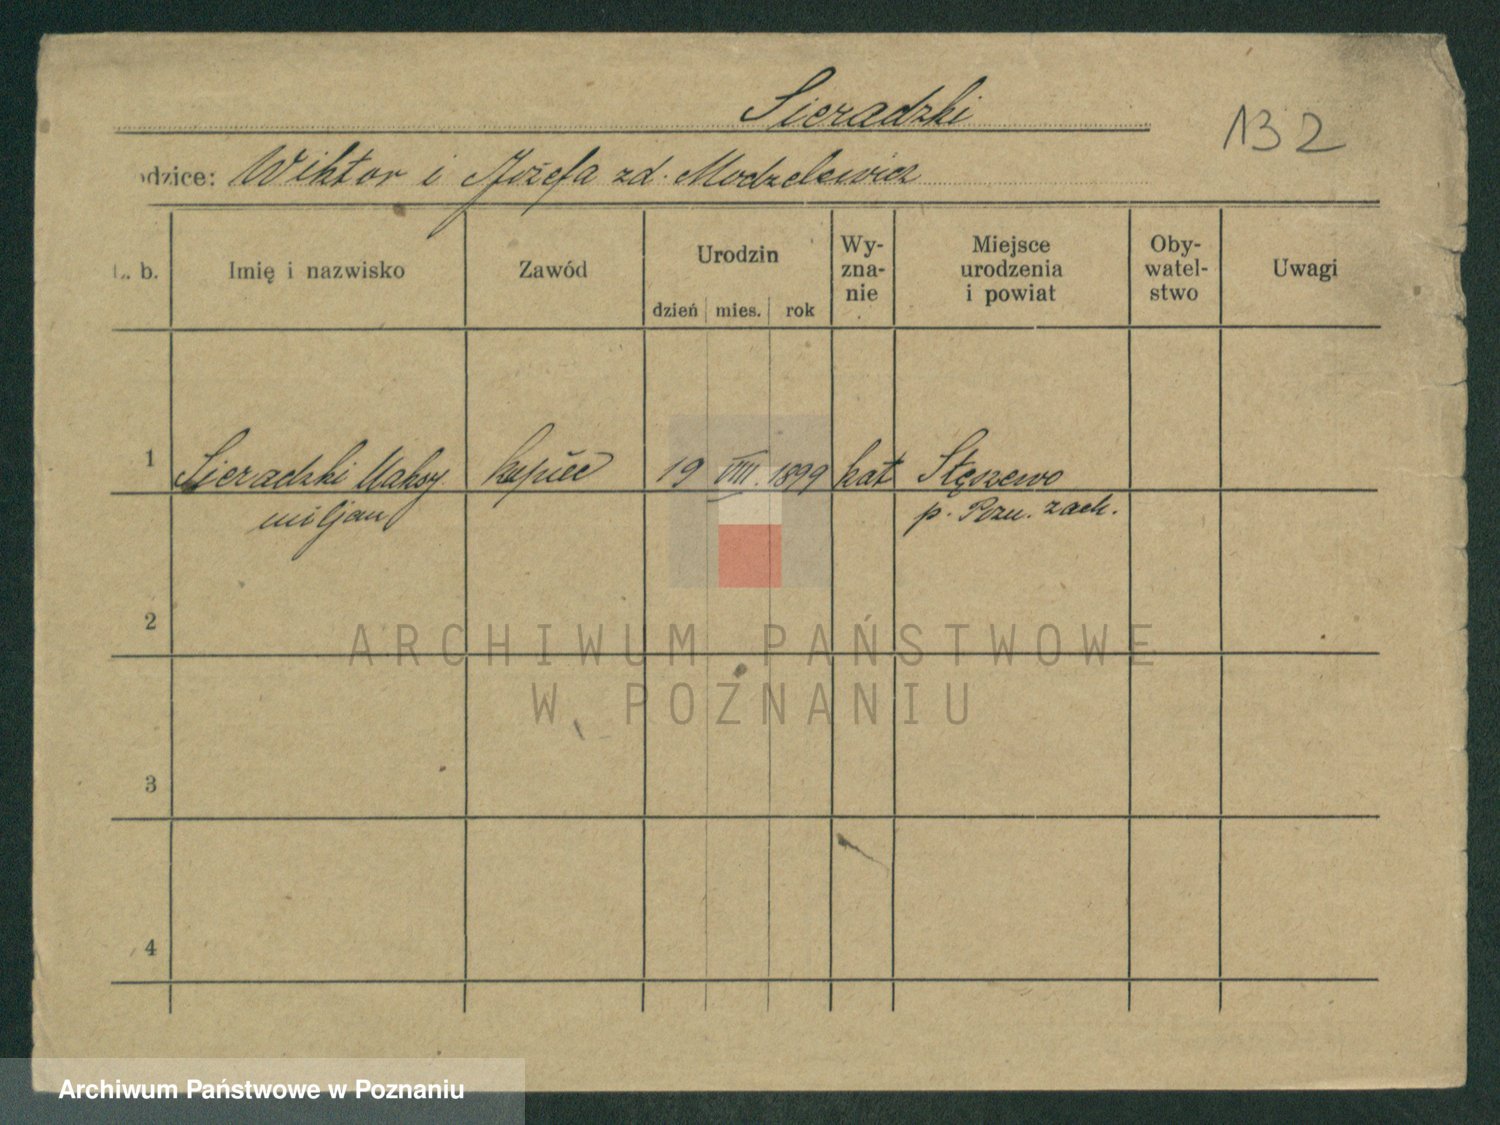 Sieradzki
132
odzice: Wiktor i Józefa zd. Modzelewicz
L. b.
Imię i nazwisko
Zawód
Urodzin
dzień mies. rok
Wy-
zna-
nie
Miejsce
urodzenia
i powiat
Oby-
watel-
stwo
Uwagi
1 Sieradzki Maksy kupiec 19 VIII. 1899 kat Stęszewo
miljan p. Pozn. zach.
2
ARCHIWUM PAŃSTWOWE
W POZNANIU
3
4
Archiwum Państwowe w Poznaniu